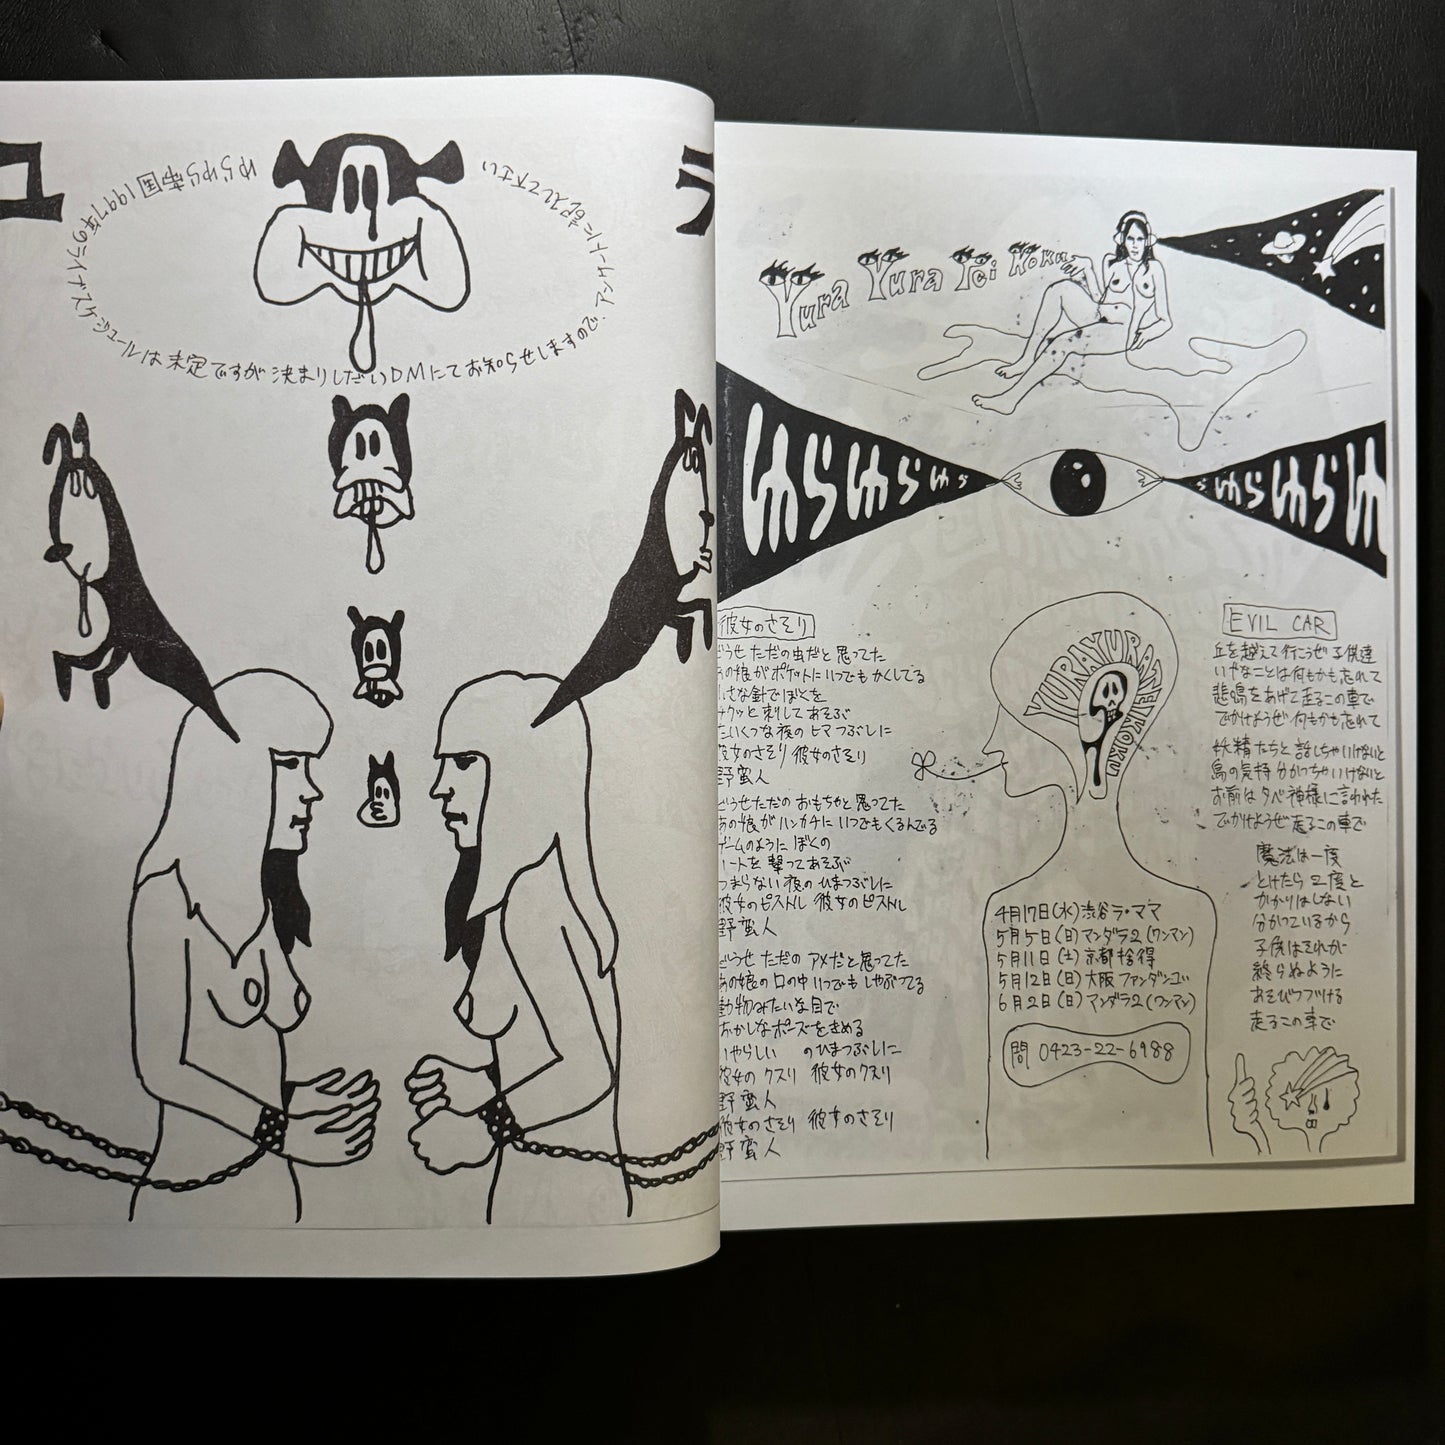 ユ
ラ
ゆらゆら帝国1997年のライブスケジュールは未定ですが決まりしだいDMにてお知らせしますので、アンケートに記入して下さい
Yura Yura Teikoku
ゆらゆらゆら
らゆらゆらゆ
彼女のさそり
どうせただの虫だと思ってた
あの娘がポケットにいつでもかくしてる
小さな針でぼくを
サクッと刺してあそぶ
たいくつな夜のヒマつぶしに
彼女のさそり 彼女のさそり
野蛮人
どうせただのおもちゃと思ってた
あの娘がハンカチにいつでもくるんでる
ゲームのようにぼくの
ハートを撃ってあそぶ
つまらない夜のひまつぶしに
彼女のピストル 彼女のピストル
野蛮人
どうせただのアメだと思ってた
あの娘の口の中いつでもしゃぶってる
動物みたいな目で
おかしなポーズをきめる
いやらしい のひまつぶしに
彼女のクスリ 彼女のクスリ
野蛮人
彼女のさそり 彼女のさそり
野蛮人
YURAYURATEIKOKU
4月17日(水)渋谷ラ・ママ
5月5日(日)マンダラ2(ワンマン)
5月11日(土)京都拾得
5月12日(日)大阪ファンダンゴ
6月2日(日)マンダラ2(ワンマン)
問 0423-22-6988
EVIL CAR
丘を越えて行こうぜ子供達
いやなことは何もかも忘れて
悲鳴をあげて走るこの車で
でかけようぜ何もかも忘れて
妖精たちと話しちゃいけないと
鳥の気持分かっちゃいけないと
お前は夕べ神様に言われた
でかけようぜ走るこの車で
魔法は一度
とけたら2度と
かかりはしない
分かっているから
子供はそれが
終らぬように
あそびつづける
走るこの車で